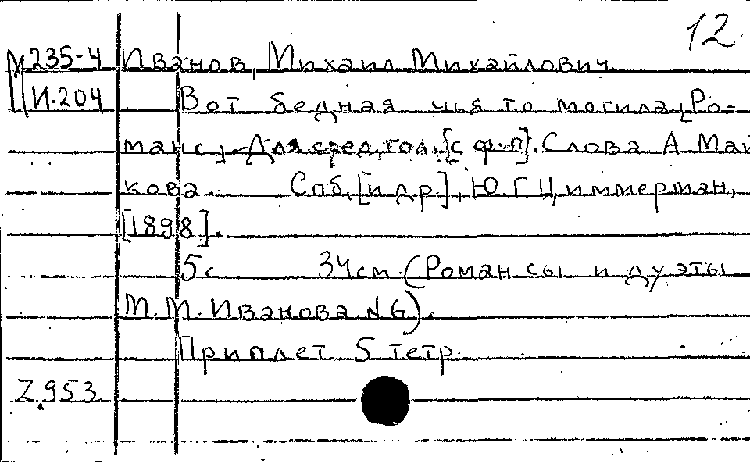 12
М 235-4 Иванов, Михаил Михайлович
И.204 Вот бедная чья то могила. [Ро-
манс]. Для сред. гол. [с ф-п]. Слова А Май
кова. Спб. [и др.], Ю Г Циммерман,
[1898].
5 с 34 см. (Романсы и дуэты
М.М. Иванова № 6).
Приплет 5 тетр.
Z.953